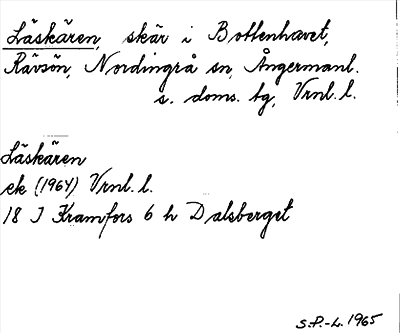 Läskären, skär i Bottenhavet,
Rävsön, Nordingrå sn, Ångermanl.
s. doms. tg, Vrnl. l.
Läskären
ek (1964) Vrnl. l.
18 J Kramfors 6 h Dalsberget
S.P.-L. 1965